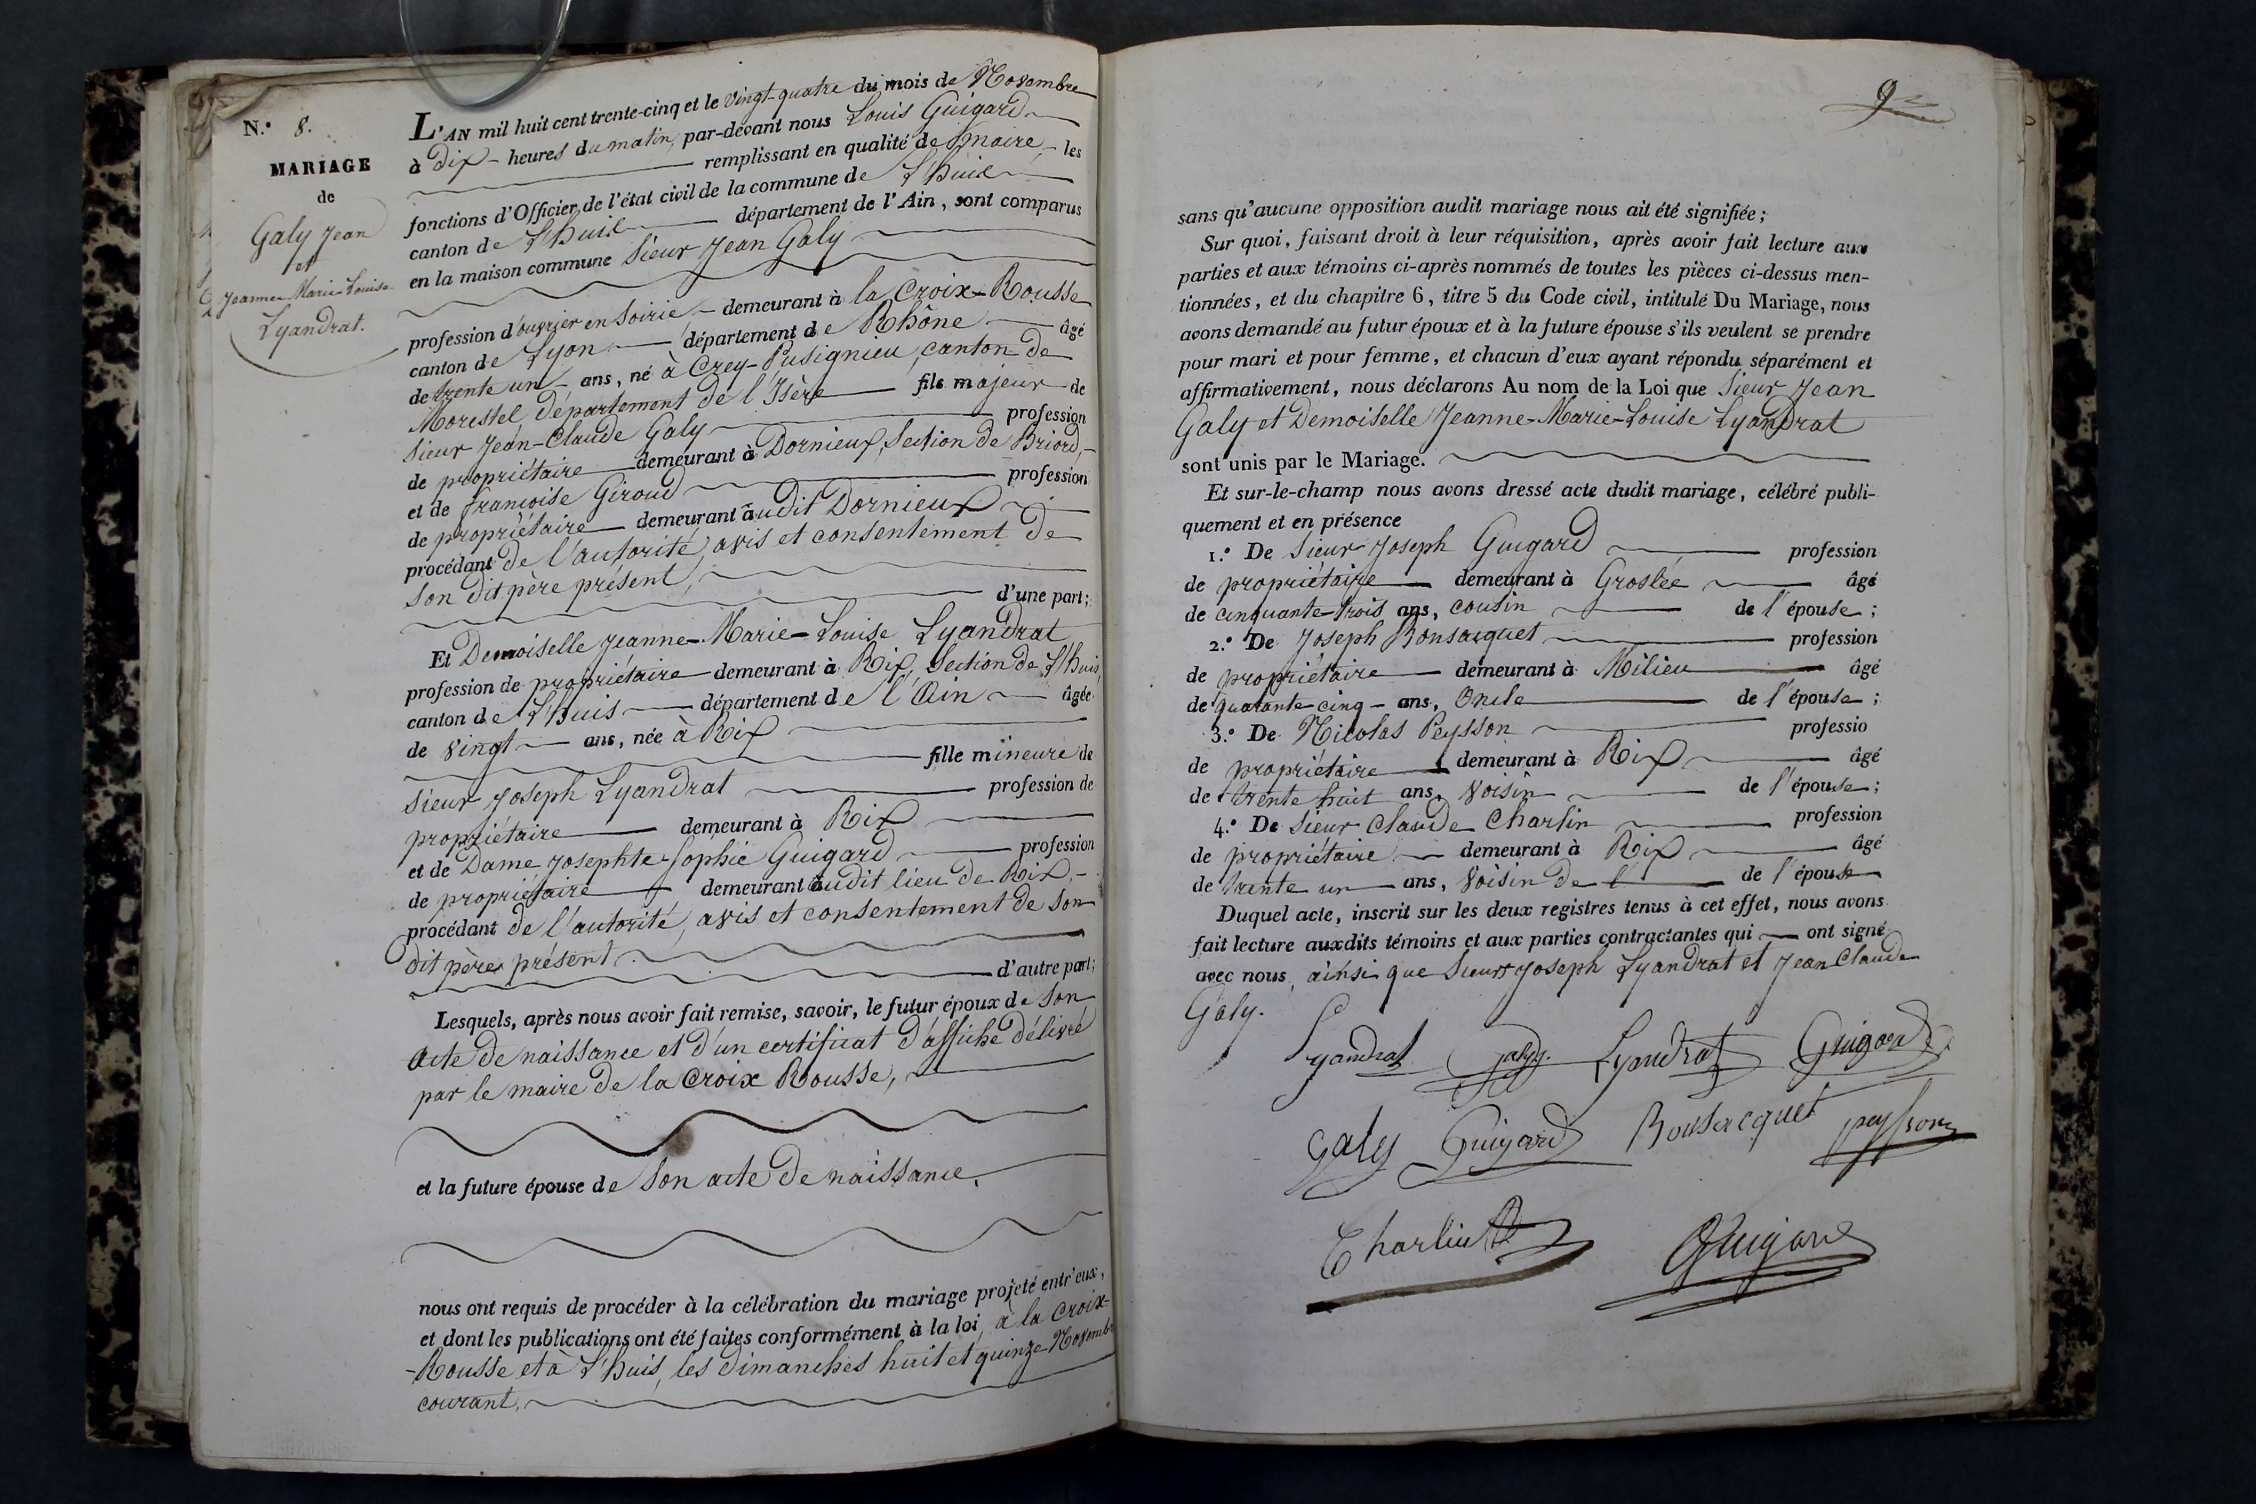 N.° 8.
MARIAGE
de
Galy Jean
et
Jeanne-Marie-Louise
Lyandrat.
L'AN mil huit cent trente-cinq et le Vingt-quatre du mois de Novembre
à Dix heures du matin, par-devant nous Louis Guigard
remplissant en qualité de Maire, les
fonctions d'Officier de l'état civil de la commune de L'huis
canton de L'huis département de l'Ain, sont comparus
en la maison commune Sieur Jean Galy
profession d'ouvrier en Soirie demeurant à la Croix-Rousse
canton de Lyon département de Rhône âgé
de trente un ans, né à Crey-Pusignieu, canton de
Morestel, département de l'Isère fils majeur de
Sieur Jean-Claude Galy profession
de propriétaire demeurant à Dornieux, Section de Briord,
et de françoise Giroud profession
de propriétaire demeurant audit Dornieux
procédant de l'autorité, avis et consentement de
son dit père présent,
d'une part;
Et Demoiselle Jeanne-Marie-Louise Lyandrat
profession de propriétaire demeurant à Rix, Section de L'huis,
canton de L'huis département de l'Ain âgée
de Vingt ans, née à Rix
fille mineure de
Sieur Joseph Lyandrat profession de
propriétaire demeurant à Rix
et de Dame Josephte-Sophie Guigard profession
de propriétaire demeurant audit lieu de Rix,
procédant de l'autorité, avis et consentement de son
dit père présent
d'autre part;
Lesquels, après nous avoir fait remise, savoir, le futur époux de Son
acte de naissance et d'un certificat d'affiche délivré
par le maire de la Croix Rousse,
et la future épouse de Son acte de naissance.
nous ont requis de procéder à la célébration du mariage projeté entr'eux,
et dont les publications ont été faites conformément à la loi, à la Croix-
-Rousse et à L'huis, les dimanches huit et quinze Novembre
courant.
9
sans qu'aucune opposition audit mariage nous ait été signifiée;
Sur quoi, faisant droit à leur réquisition, après avoir fait lecture aux
parties et aux témoins ci-après nommés de toutes les pièces ci-dessus men-
tionnées, et du chapitre 6, titre 5 du Code civil, intitulé Du Mariage, nous
avons demandé au futur époux et à la future épouse s'ils veulent se prendre
pour mari et pour femme, et chacun d'eux ayant répondu séparément et
affirmativement, nous déclarons Au nom de la Loi que Sieur Jean
Galy et Demoiselle Jeanne-Marie-Louise Lyandrat
sont unis par le Mariage.
Et sur-le-champ nous avons dressé acte dudit mariage, célébré publi-
quement et en présence
1.° De Sieur Joseph Guigard profession
de propriétaire demeurant à Groslée âgé
de cinquante-trois ans, cousin de l'épouse;
2.° De Joseph Bonsacquet profession
de propriétaire demeurant à Milieu âgé
de quarante cinq ans, Oncle de l'épouse;
3.° De Nicolas Peysson professio
de propriétaire demeurant à Rix âgé
de trente huit ans, Voisin de l'épouse;
4.° De Sieur Claude Charlin profession
de propriétaire demeurant à Rix âgé
de trente un ans, Voisin de l' de l'épouse
Duquel acte, inscrit sur les deux registres tenus à cet effet, nous avons
fait lecture auxdits témoins et aux parties contractantes qui ont signé
avec nous, ainsi que Sieurs Joseph Lyandrat et Jean Claude
Galy.
Lyandrat Galy Lyandrat Guigard
Galy Guigard Bonsacquet peysson
Charlin Guigard